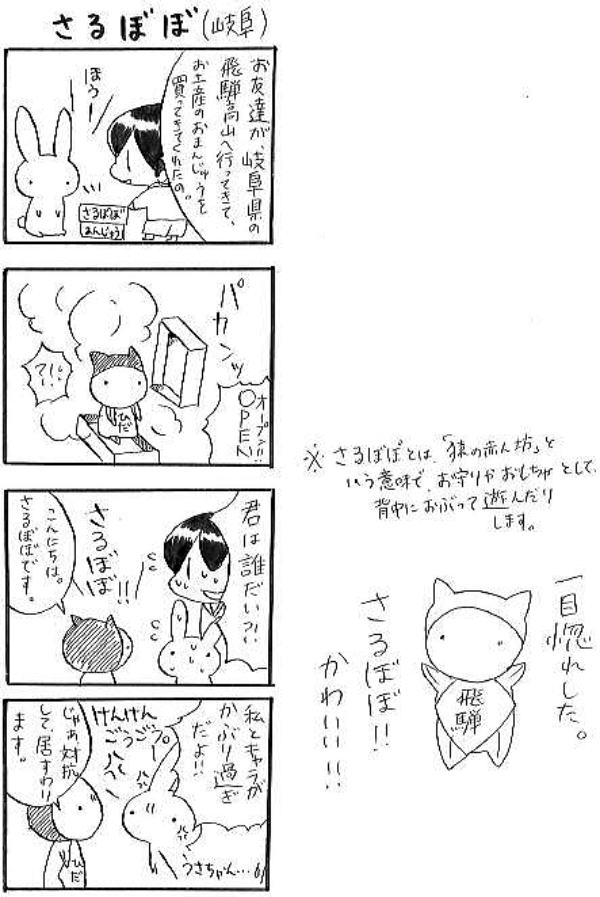 さるぼぼ(岐阜)
お友達が、岐阜県の
飛騨高山へ行ってきて、
お土産のおまんじゅうを
買ってきてくれたの。
ほうー
さるぼぼ
まんじゅう
パカンッ
オープン!!
OPEN
?!!
ひだ
君は誰だい?!!
さるぼぼ!!
こんにちは。
さるぼぼです。
私とキャラが
かぶり過ぎ
だよ!!
けんけん
ごうごう
うさちゃん…
じゃあ対抗
して、居すわり
ます。
ひだ
※さるぼぼとは、「猿の赤ん坊」と
いう意味で、お守りかおもちゃとして、
背中におぶって遊んだり
します。
一目惚れした。
さるぼぼ!!
かわいい!!
飛騨